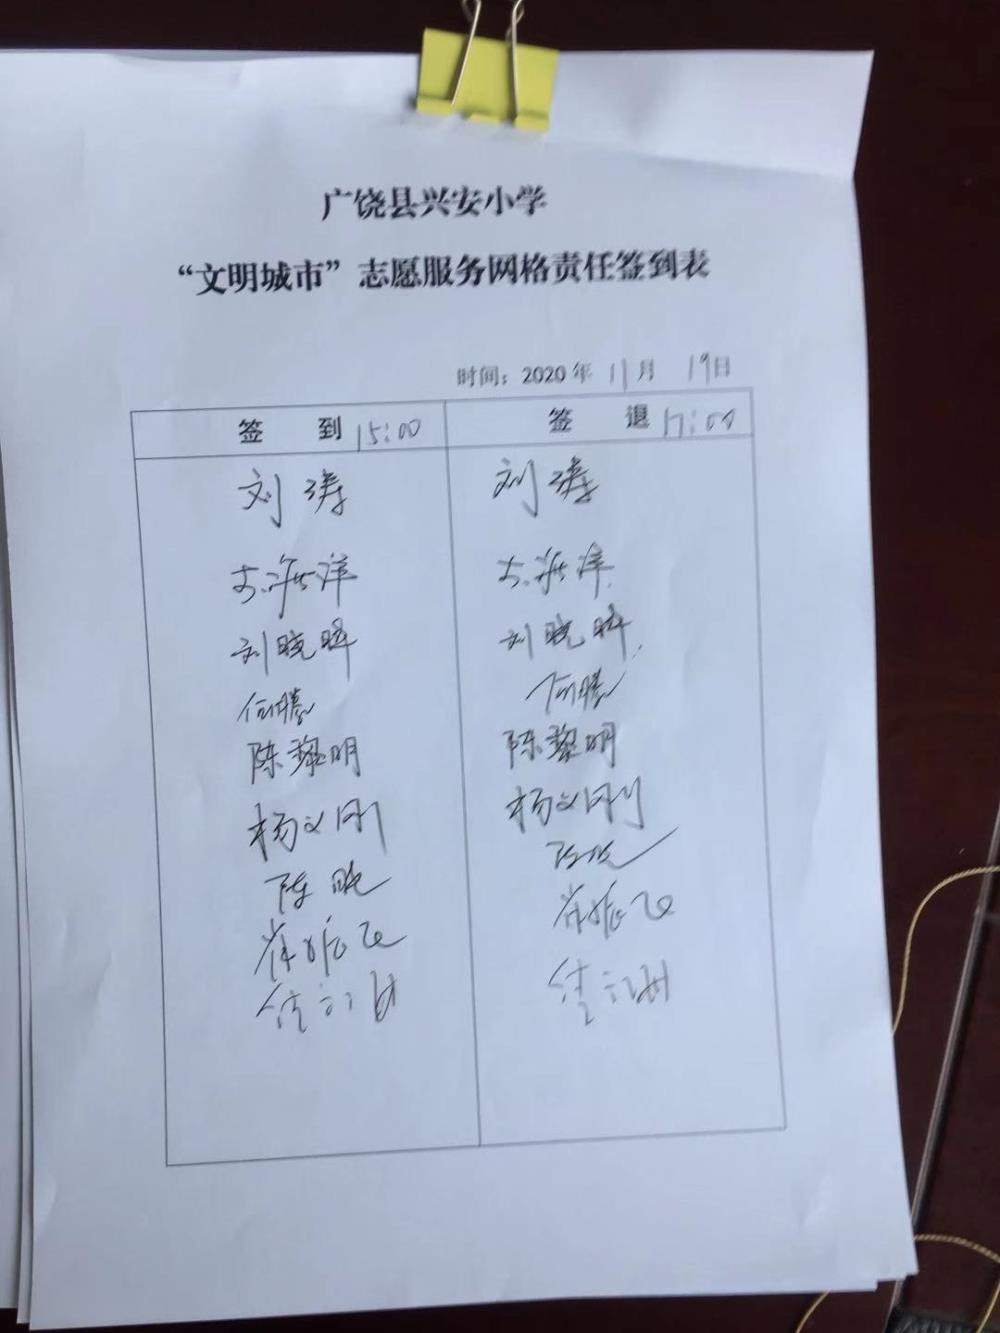 广饶县兴安小学
“文明城市”志愿服务网格责任签到表
时间：2020年 11月 19日
签 到 15:00 签 退 17:00
刘涛 刘涛
李海洋 李海洋
刘晓晖 刘晓晖
何腾 何腾
陈黎明 陈黎明
杨文刚 杨文刚
陈晓 陈晓
崔振飞 崔振飞